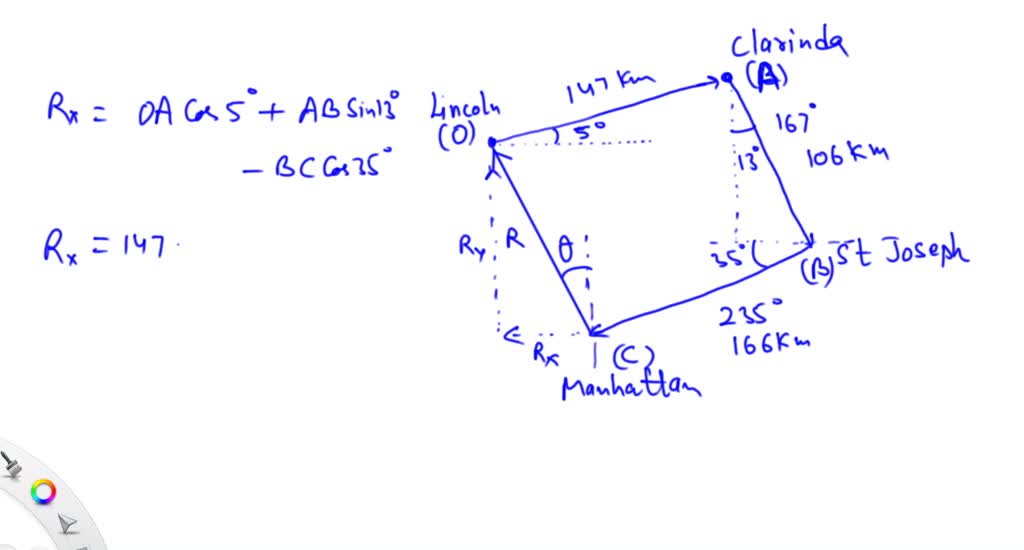 Rx = OA Cos 5° + AB Sin13°
- BC Cos 35°
Rx = 147.
Lincoln
(O)
147 Km
5°
Clarinda
(A)
167°
106 Km
13°
Ry
R
θ
35°
(B) St Joseph
235°
166 Km
Rx
(C)
Manhattan